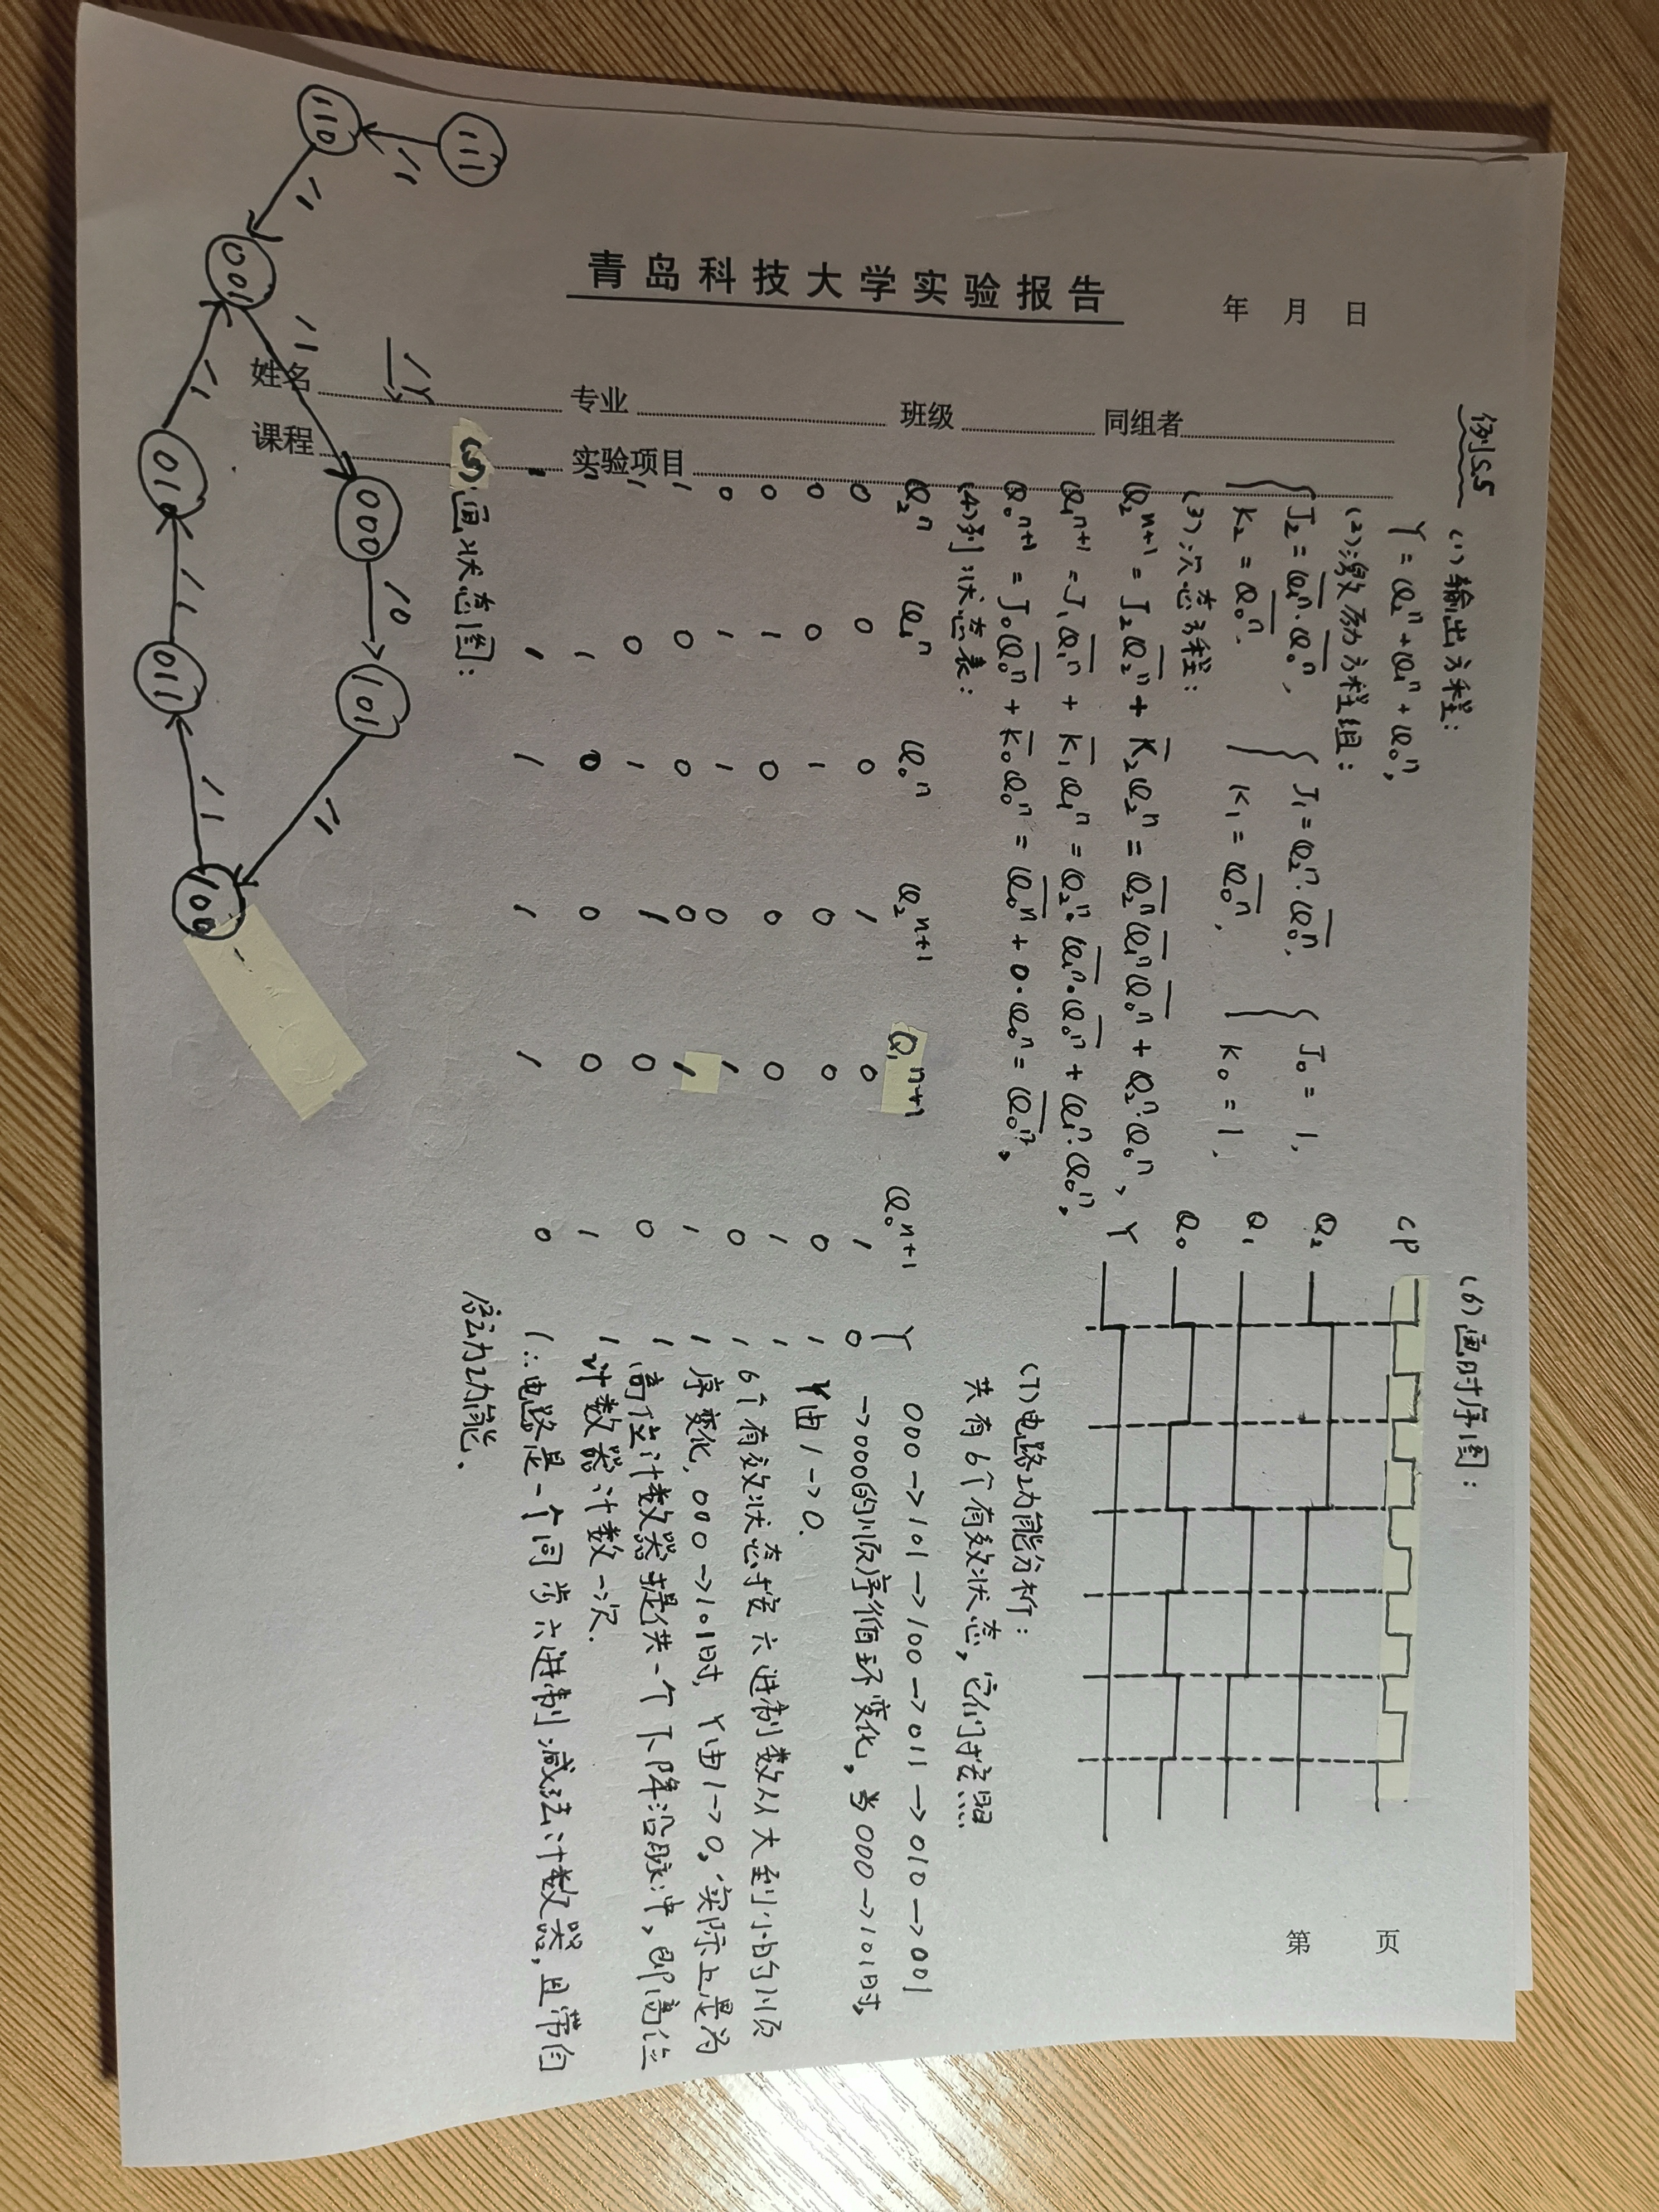 青岛科技大学实验报告
年 月 日
姓名 专业 班级 同组者
课程 实验项目
第 页
例5.5 (1)输出方程:
Y = Q₂ⁿ + Q₁ⁿ + Q₀ⁿ,
(2)激励方程组:
{ J₂ = Q̅₁ⁿ · Q̅₀ⁿ, { J₁ = Q₂ⁿ · Q̅₀ⁿ, { J₀ = 1,
K₂ = Q̅₀ⁿ. K₁ = Q̅₀ⁿ, K₀ = 1.
(3)次态方程:
Q₂ⁿ⁺¹ = J₂Q̅₂ⁿ + K̅₂Q₂ⁿ = Q̅₂ⁿQ̅₁ⁿQ̅₀ⁿ + Q₂ⁿ·Q₀ⁿ,
Q₁ⁿ⁺¹ = J₁Q̅₁ⁿ + K̅₁Q₁ⁿ = Q₂ⁿ·Q̅₁ⁿ·Q̅₀ⁿ + Q₁ⁿ·Q₀ⁿ,
Q₀ⁿ⁺¹ = J₀Q̅₀ⁿ + K̅₀Q₀ⁿ = Q̅₀ⁿ + 0·Q₀ⁿ = Q̅₀ⁿ,
(4)列状态表:
Q₂ⁿ Q₁ⁿ Q₀ⁿ Q₂ⁿ⁺¹ Q₁ⁿ⁺¹ Q₀ⁿ⁺¹ Y
0 0 0 1 0 1 0
0 0 1 0 0 0 1
0 1 0 0 0 1 1
0 1 1 0 1 0 1
1 0 0 0 1 1 1
1 0 1 1 0 0 1
1 1 0 0 0 1 1
1 1 1 1 1 0 1
(5)画状态图:
/Y
111 /1 110 /1 001 /1 000 /0 101 /1 100 /1 011 /1 010 /1
(6)画时序图:
CP
Q₂
Q₁
Q₀
Y
(7)电路功能分析:
共有6个有效状态,它们按照
000→101→100→011→010→001
→000的顺序循环变化,当000→101时,
Y由1→0.
6个有效状态按六进制数从大到小的顺
序变化,000→101时,Y由1→0,实际上是为
高位计数器提供一个下降沿脉冲,即高位
计数器计数一次.
∴电路是一个同步六进制减法计数器,且带自
启动功能.